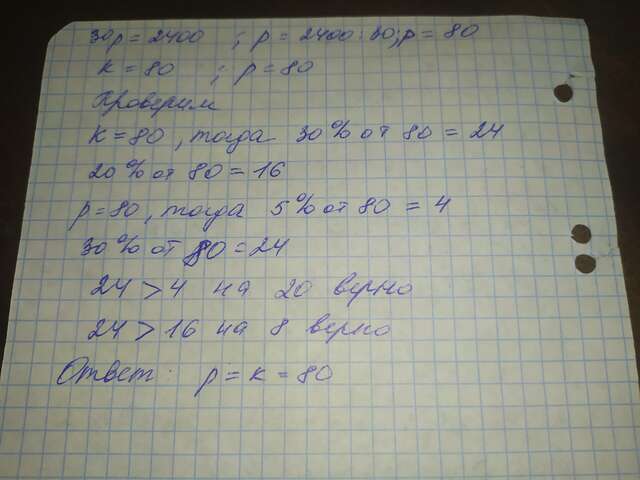 30p = 2400 ; p = 2400 : 30; p = 80
k = 80 ; p = 80
Проверим
k = 80 , тогда 30% от 80 = 24
20% от 80 = 16
p = 80 , тогда 5% от 80 = 4
30% от 80 = 24
24 > 4 на 20 верно
24 > 16 на 8 верно
Ответ: p = k = 80